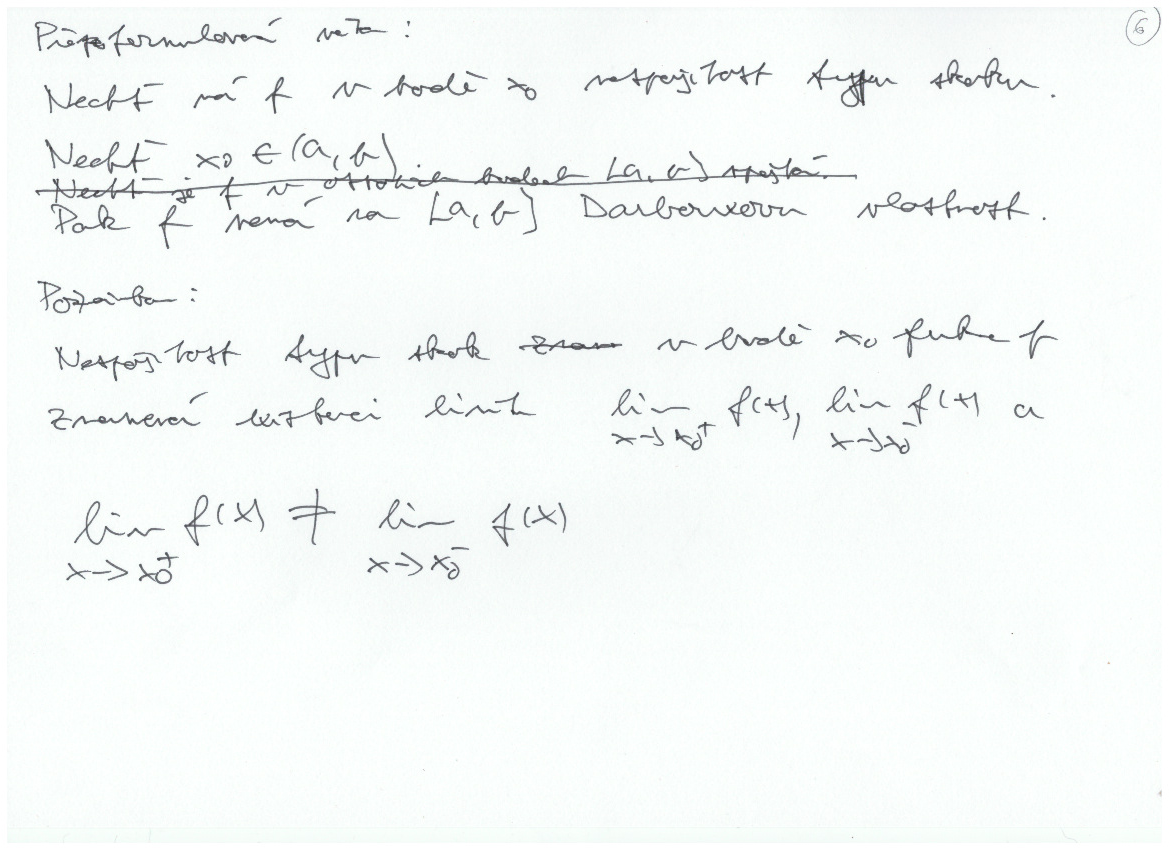 6
Přeformulovaná věta :
Nechť má f v bodě x₀ nespojitost typu skoku.
Nechť x₀ ∈ (a, b)
Nechť je f v ostatních bodech [a, b] spojitá.
Pak f nemá na [a, b] Darbouxovu vlastnost.
Poznámka :
Nespojitost typu skok v bodě x₀ funkce f
znamená existenci limit lim x→x₀⁺ f(x), lim x→x₀⁻ f(x) a
lim x→x₀⁺ f(x) ≠ lim x→x₀⁻ f(x)